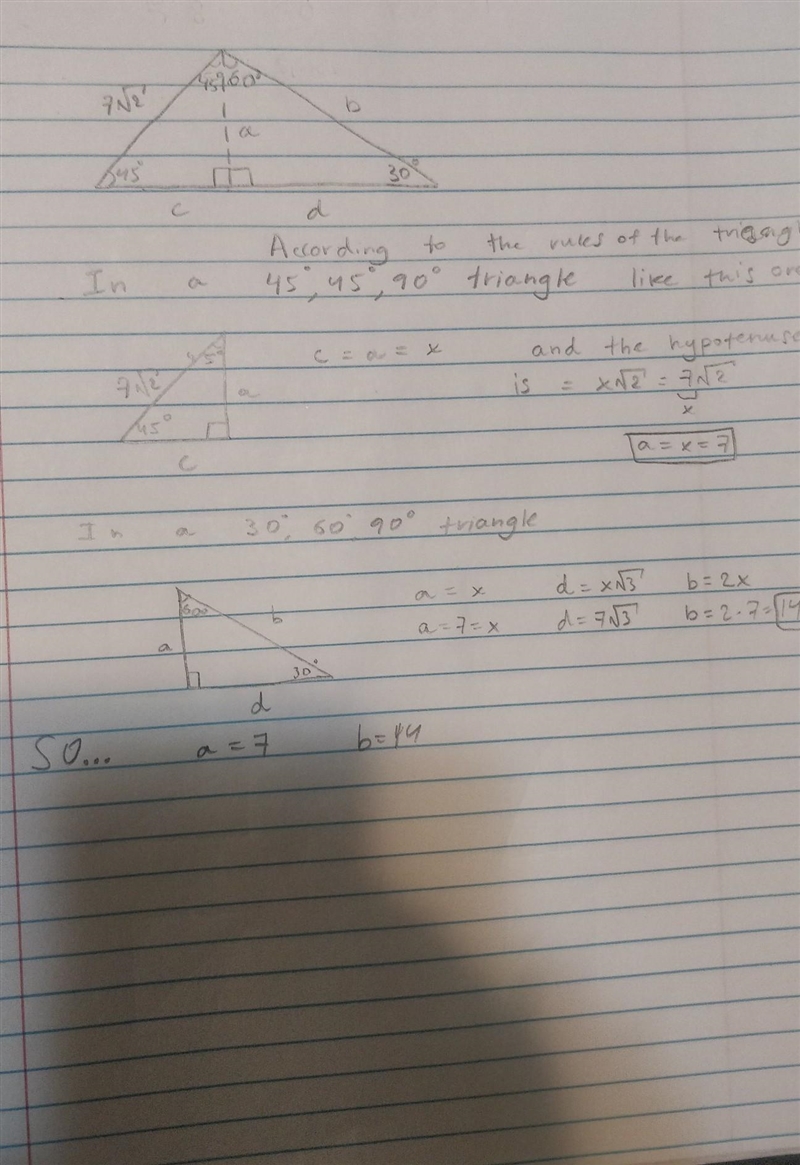 45° 60°
7√2
b
a
45°
30°
c
d
According to the rules of the
In a 45°, 45°, 90° triangle like this
45°
c = a = x and the hypotenuse
7√2
a
is = x√2 = 7√2
x
45°
c
a = x = 7
In a 30°, 60°, 90° triangle
a = x d = x√3 b = 2x
60°
b
a = 7 = x d = 7√3 b = 2·7 = 14
a
30°
d
SO... a = 7 b = 14